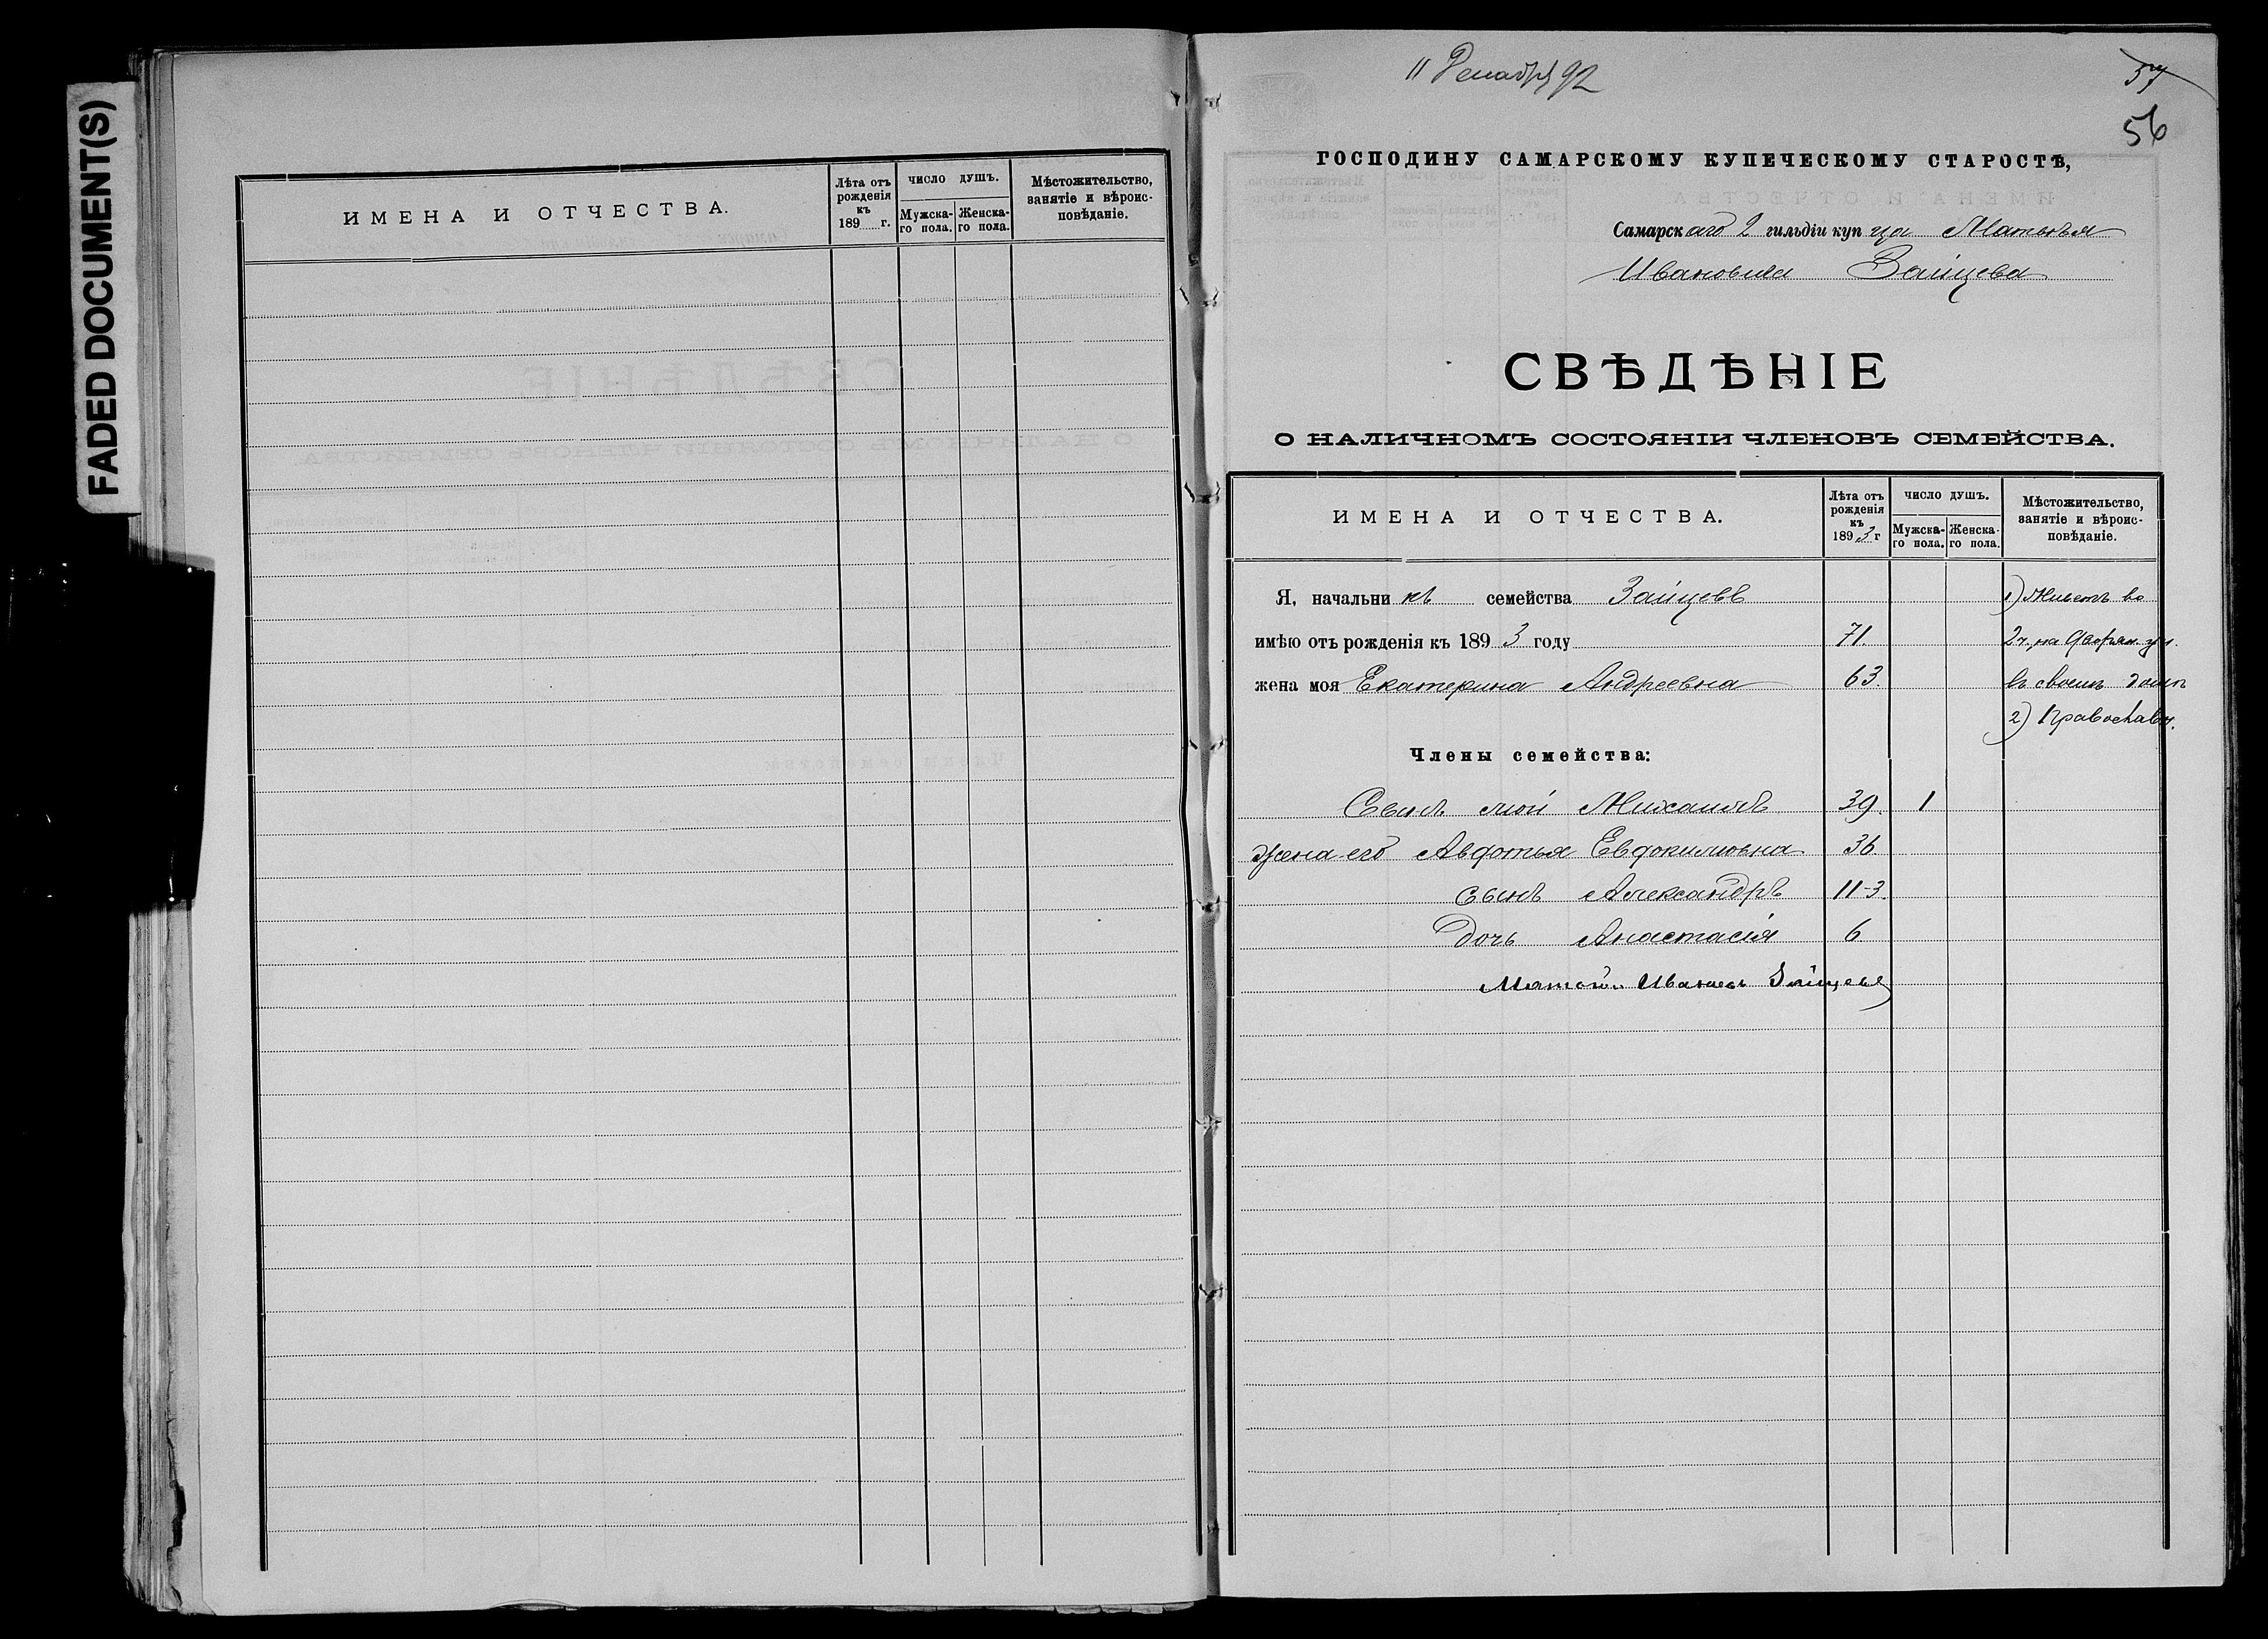 FADED DOCUMENT(S)
ИМЕНА И ОТЧЕСТВА.
Лѣта отъ рожденія къ 189 г.
ЧИСЛО ДУШЪ.
Мужска-го пола.
Женска-го пола.
Мѣстожительство, занятіе и вѣроис-повѣданіе.
11 Декабря 92
57
56
ГОСПОДИНУ САМАРСКОМУ КУПЕЧЕСКОМУ СТАРОСТѢ,
Самарскаго 2 гильдіи купца Матвѣя
Ивановича Зайцева
СВѢДѢНІЕ
О НАЛИЧНОМЪ СОСТОЯНІИ ЧЛЕНОВЪ СЕМЕЙСТВА.
ИМЕНА И ОТЧЕСТВА.
Лѣта отъ рожденія къ 1893 г
ЧИСЛО ДУШЪ.
Мужска-го пола.
Женска-го пола.
Мѣстожительство, занятіе и вѣроис-повѣданіе.
Я, начальникъ семейства Зайцевъ 1) Живетъ во
имѣю отъ рожденія къ 1893 году 71. 2 ч. на Дворян. ул.
жена моя Екатерина Андреевна 63. въ своемъ домѣ
2) Православн.
Члены семейства:
Сынъ мой Михаилъ 39. 1
жена его Авдотья Евдокимовна 36
сынъ Александръ 11-3.
дочь Анастасія 6
Матвѣй Ивановъ Зайцевъ